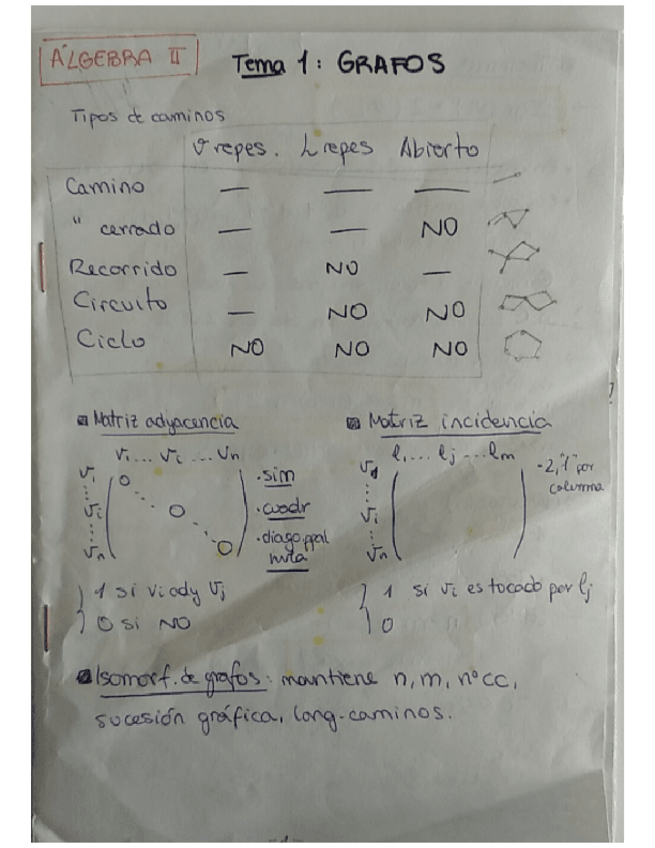 ÁLGEBRA II
Tema 1: GRAFOS
Tipos de caminos
V repes. L repes Abierto
Camino — — —
" cerrado — — NO
Recorrido — NO —
Circuito — NO NO
Ciclo NO NO NO
Matriz adyacencia
v1 ... vi ... vn
v1 0
vi 0
vn 0
· sim
· cuadr
· diago. ppal
nula
1 si vi ady vj
0 si NO
Matriz incidencia
l1 ... lj ... lm
v1
vi
vn
- 2 "1" por
columna
1 si vi es tocado por lj
0
Isomorf. de grafos: mantiene n, m, nº cc,
sucesión gráfica, long. caminos.
-1-